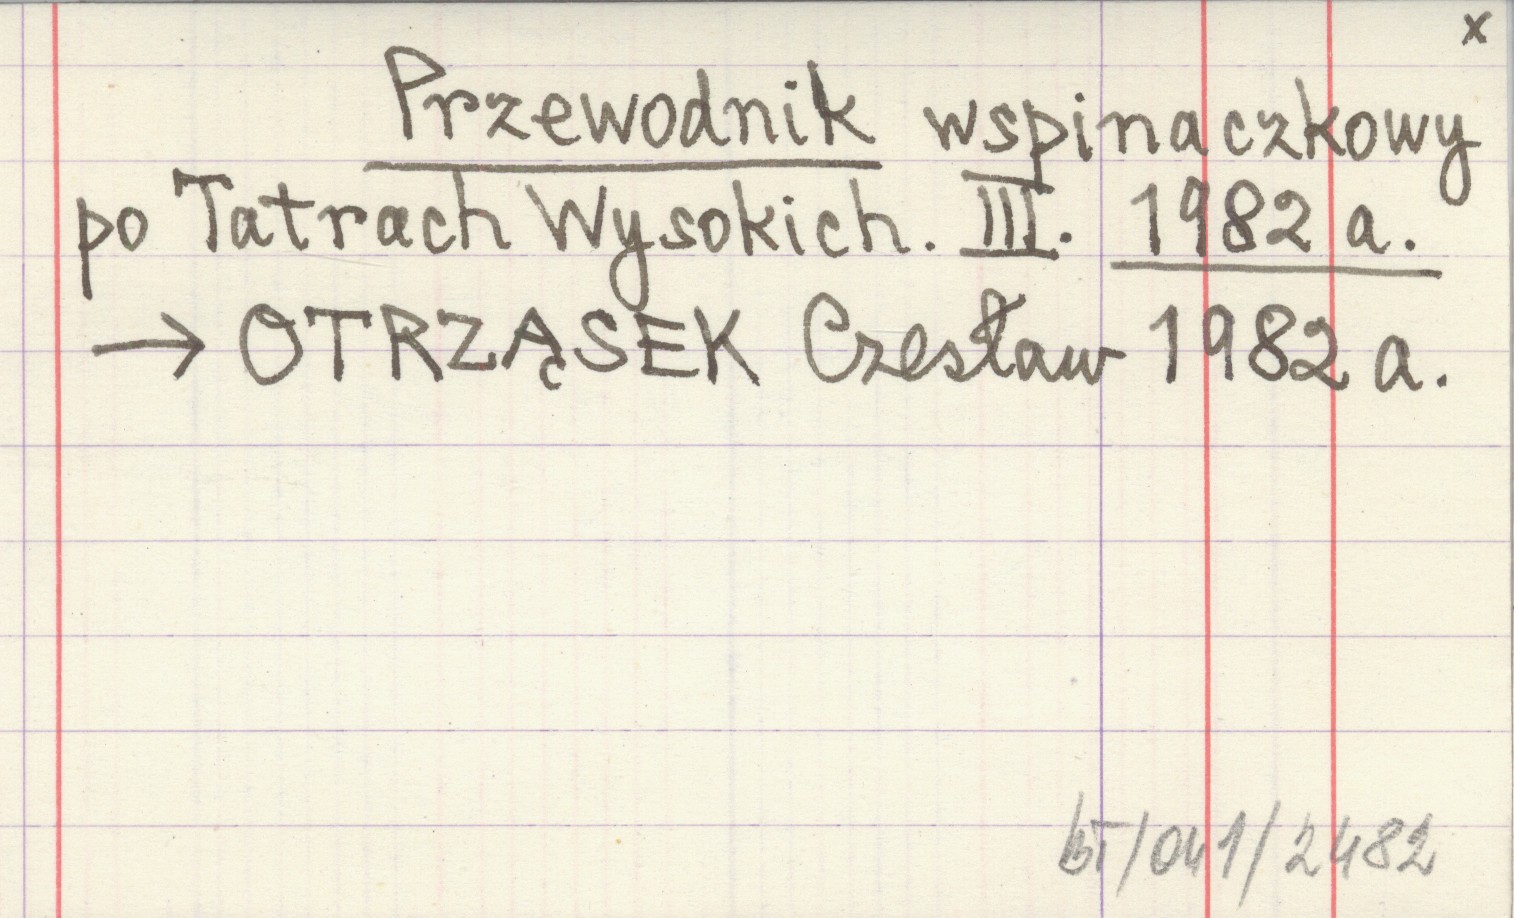 x
Przewodnik wspinaczkowy
po Tatrach Wysokich. III. 1982 a.
→ OTRZĄSEK Czesław 1982 a.
bT/041/2482